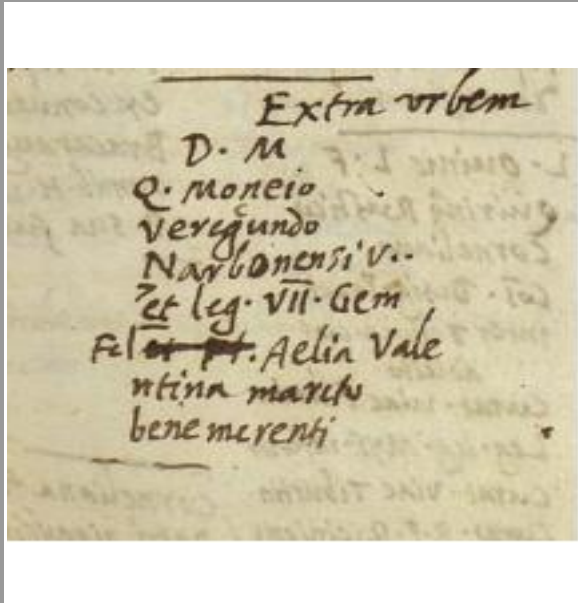 Extra urbem
D. M
Q. Moneio
verecundo
Narbonensi V..
et leg. VII. Gem
Fel. Aelia Vale
ntina marito
benemerenti